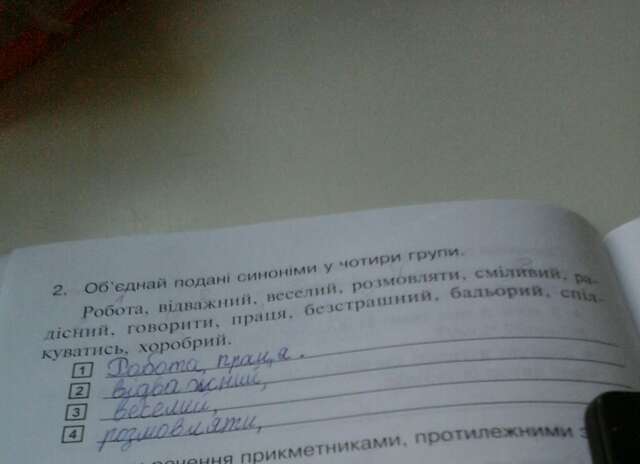 2. Об'єднай подані синоніми у чотири групи.
Робота, відважний, веселий, розмовляти, сміливий, ра-
дісний, говорити, праця, безстрашний, бадьорий, спіл-
куватись, хоробрий.
1 Робота, праця.
2 відважний,
3 веселий,
4 розмовляти,
речення прикметниками, протилежними з